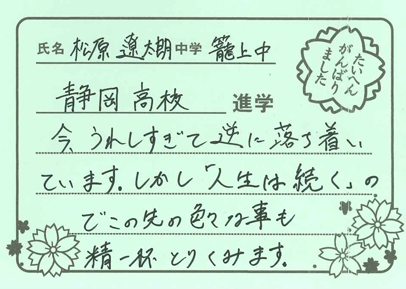 氏名 松原 遼太朗 中学 籠上中
たいへん
がんばり
ました
静岡高校 進学
今、うれしすぎて逆に落ち着い
ています。しかし「人生は続く」の
でこの先の色々な事も
精一杯とりくみます。